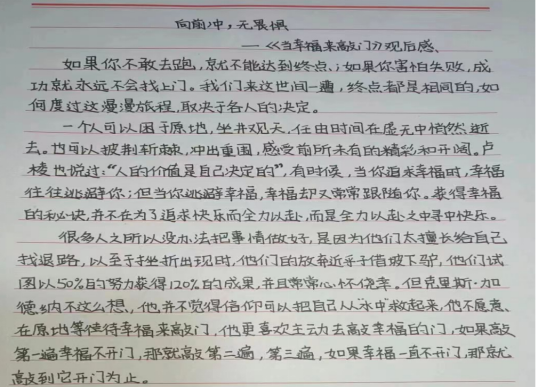 向前冲，无畏惧
——《当幸福来敲门》观后感
如果你不敢去跑，就不能达到终点；如果你害怕失败，成
功就永远不会找上门。我们来这世间一遭，终点都是相同的，如
何度过这漫漫旅程，取决于各人的决定。
一个人可以困于原地，坐井观天，任由时间在虚无中悄然逝
去。也可以披荆斩棘，冲出重围，感受前所未有的精彩和开阔。卢
梭也说过："人的价值是自己决定的"，有时候，当你追求幸福时，幸福
往往逃避你；但当你逃避幸福，幸福却又常常跟随你。获得幸福
的秘诀，并不在为了追求快乐而全力以赴，而是全力以赴之中寻中快乐。
很多人之所以没办法把事情做好，是因为他们太擅长给自己
找退路，以至于挫折出现时，他们的放弃近乎借坡下驴，他们试
图以50%的努力获得120%的成果，并且常常心怀侥幸。但克里斯·加
德纳不这么想，他并不觉得信仰可以把自己从水中救起来，他不愿意
在原地等待幸福来敲门，他更喜欢主动去敲幸福的门，如果敲
第一遍幸福不开门，那就敲第二遍，第三遍，如果幸福一直不开门，那就
敲到它开门为止。